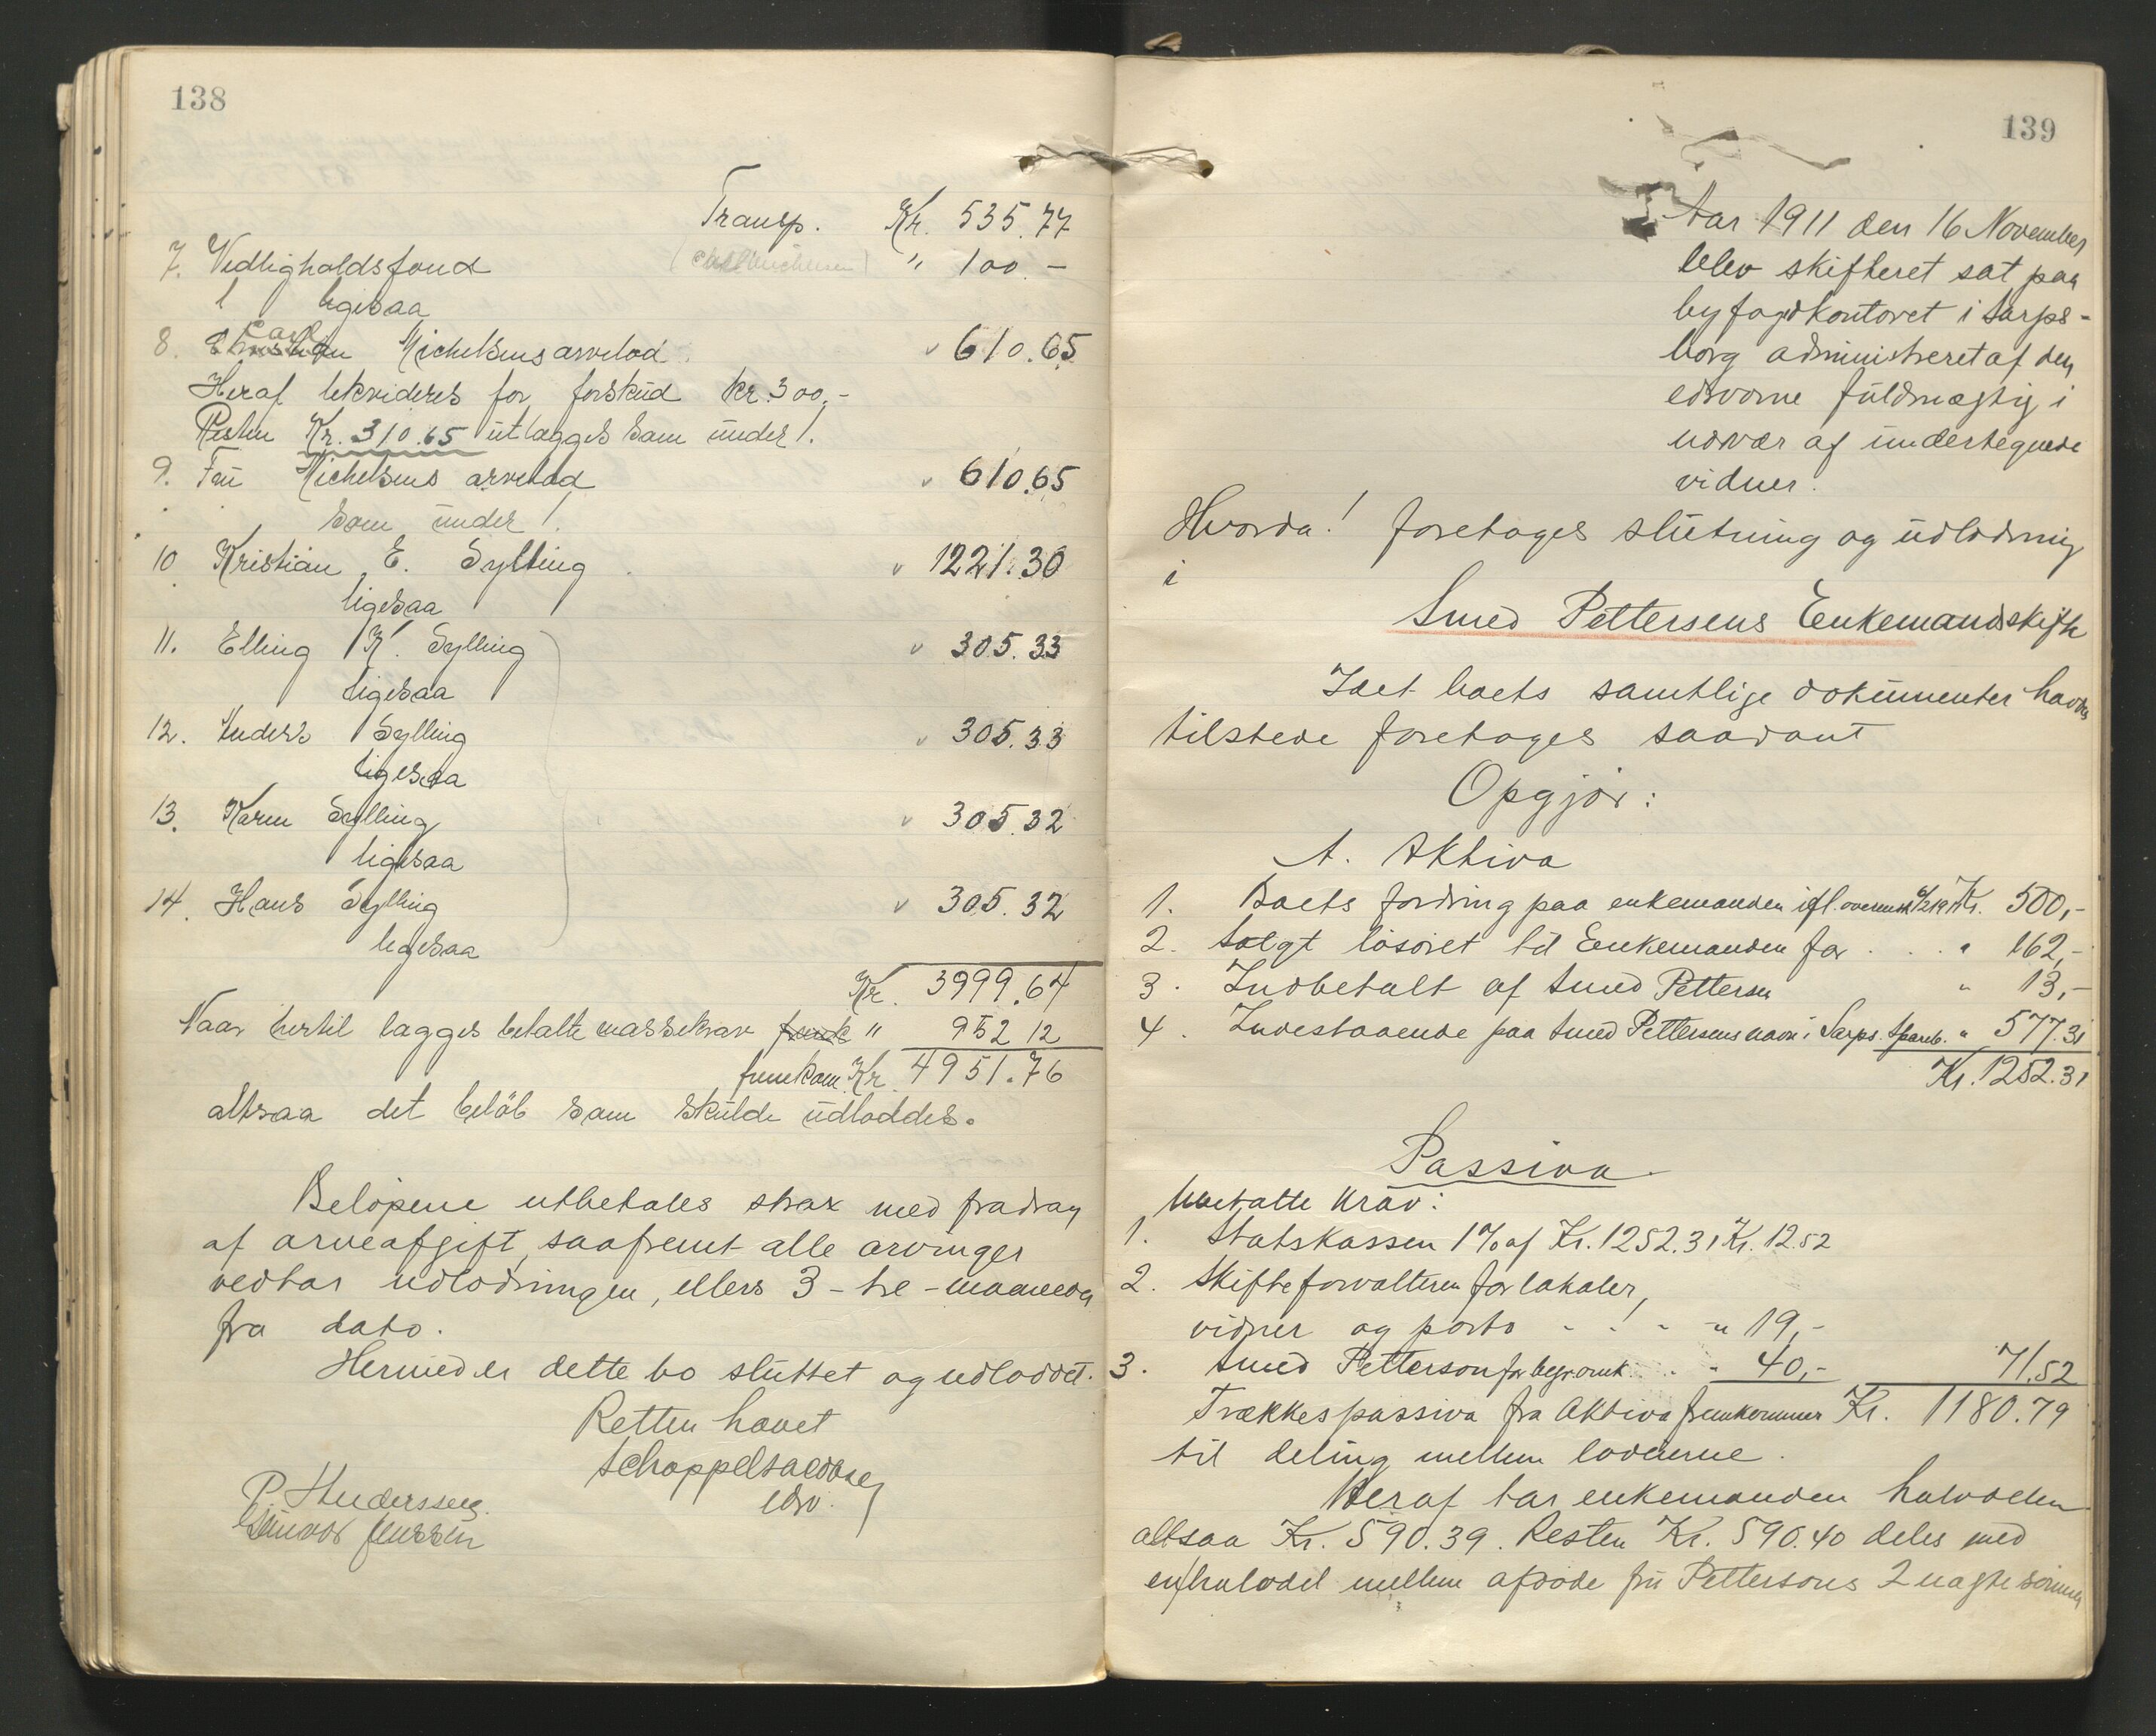 138
Transp. Kr. 535.77
7. Vedligholdsfond " 100.-
ligesaa
8. Carl Michelsens arvelod " 610.65
Heraf likvideres for forskud kr. 300,-
Resten Kr. 310.65 utlægges som under 1.
9. Fru Michelsens arvelod " 610.65
som under 1.
10 Kristian E. Sylling " 1221.30
ligesaa
11. Elling K. Sylling " 305.33
ligesaa
12. Anders Sylling " 305.33
ligesaa
13. Karen Sylling " 305.32
ligesaa
14. Hans Sylling " 305.32
ligesaa
Kr. 3999.64
Naar hertil lægges betalte massekrav " 952 12
fremkom Kr. 4951.76
altsaa det beløb som skulde udloddes.
Beløpene utbetales strax med fradrag
af arveafgift, saafremt alle arvinger
vedtar udlodningen, ellers 3 - tre - maaneder
fra dato.
Hermed er dette bo sluttet og udloddet.
Retten hævet
edsv.
P. Andersen
Gunvor Jenssen
139
Aar 1911 den 16 November
blev skifteret sat paa
byfogdkontoret i Sarps-
borg administreret af den
edsvorne fuldmægtig i
nærvær af undertegnede
vidner.
Hvorda! foretoges slutning og udlodning
i
Smed Pettersens Enkemandskifte
Idet boets samtlige dokumenter havdes
tilstede foretoges saadant
Opgjør:
A. Aktiva
1. Boets fordring paa enkemanden ifl. Kr. 500,-
2. Solgt løsøret til Enkemanden for . . . " 162,-
3. Indbetalt af Smed Pettersen " 13,-
4. Indestaaende paa Smed Pettersens navn i Sarps. Spareb. " 577.31
Kr. 1252.31
Passiva
Ubetalte krav:
1. Statskassen 1% af Kr. 1252.31 Kr. 12.52
2. Skifteforvalteren for lokaler,
vidner og porto - - - " 19,-
3. Smed Petterson for begr. omk. . . " 40,- 71.52
Trækkes passiva fra Aktiva fremkommer Kr. 1180.79
til deling mellem lodeierne.
Heraf tar enkemanden halvdelen
altsaa Kr. 590.39. Resten Kr. 590.40 deles med
en halvdel mellem afdøde fru Pettersons 2 ægte sønner